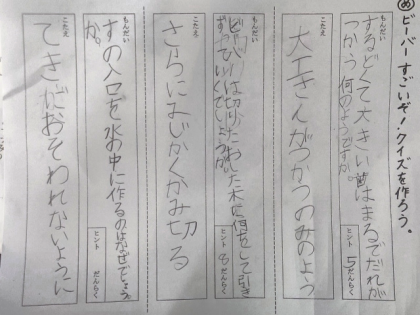 め ビーバー、すごいぞ！クイズを作ろう。
もんだい
するどくて大きい歯はまるでだれが
つかう何のようですか。
ヒント 5だんらく
こたえ
大工さんがつかうのみのよう
もんだい
ビーバーは切りたおした木に何をして引き
ヒント 8だんらく
こたえ
さらにみじかくかみ切る
もんだい
すの入口を水の中に作るのはなぜでしょう
か。
ヒント だんらく
こたえ
てきにおそわれないように